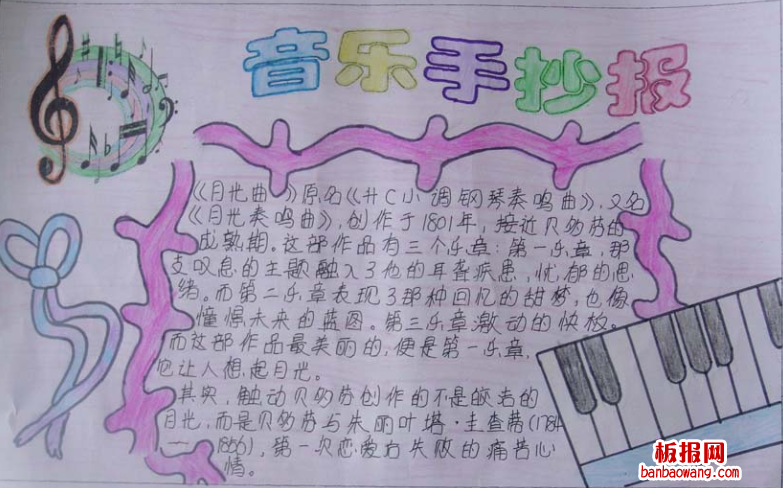 音乐手抄报
《月光曲》原名《升C小调钢琴奏鸣曲》，又名
《月光奏鸣曲》，创作于1801年，接近贝多芬的
成熟期。这部作品有三个乐章：第一乐章，那
支叹息的主题融入了他的耳聋疾患，忧郁的思
绪。而第二乐章表现了那种回忆的甜梦，也像
憧憬未来的蓝图。第三乐章激动的快板。
而这部作品最美丽的，便是第一乐章，
它让人想起月光。
其实，触动贝多芬创作的不是皎洁的
月光，而是贝多芬与朱丽叶塔·圭查蒂(1784
—1856)，第一次恋爱后失败的痛苦心
情。
板报网
banbaowang.com